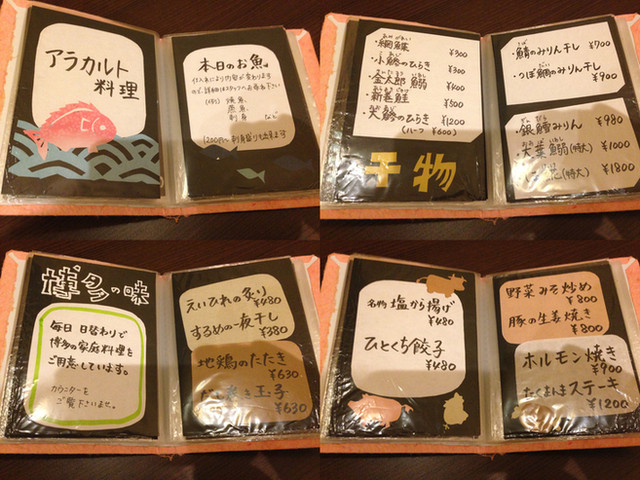 アラカルト
料理
本日のお魚
仕入れにより内容が変わります
(例) 焼魚
煮魚
刺身 など
1200円〜刺身盛りも出来ます
¥300
・小鯵のひらき ¥300
・金太郎鰯 ¥400
・新巻鮭 ¥500
・大鯵のひらき ¥1200
(ハーフ ¥600)
干物
・鯖のみりん干し ¥700
・つぼ鯛のみりん干し ¥900
・銀鱈みりん ¥980
・大葉鰯(特大) ¥1000
(特大) ¥1800
博多の味
毎日 日替わりで
博多の家庭料理を
ご用意しています。
カウンターを
ご覧下さいませ。
えいひれの炙り
¥480
するめの一夜干し
¥380
地鶏のたたき
¥630
き玉子
¥630
名物 塩から揚げ
¥480
ひとくち餃子
¥480
野菜みそ炒め
¥800
豚の生姜焼き
¥800
ホルモン焼き
¥900
たくまんまステーキ
¥1200